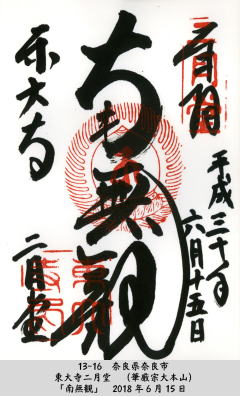 奉拝
平成三十年
六月十五日
南無観
二月堂
東大寺
13-16　奈良県奈良市
東大寺二月堂　（華厳宗大本山）
「南無観」　2018年6月15日